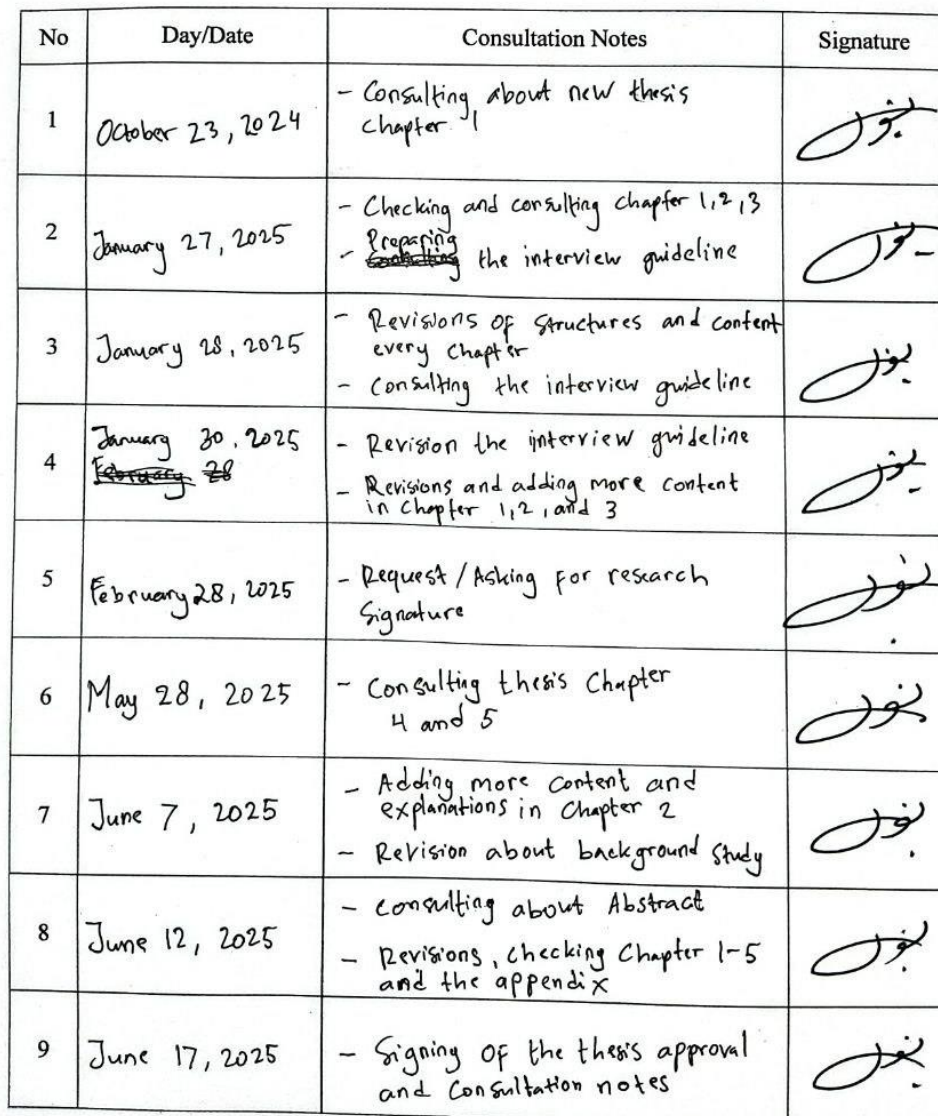 No Day/Date Consultation Notes Signature
1 October 23, 2024 - Consulting about new thesis
chapter 1
2 January 27, 2025 - Checking and consulting chapter 1,2,3
- Preparing the interview guideline
3 January 28, 2025 - Revisions of structures and content
every Chapter
- Consulting the interview guideline
4 January 30, 2025 - Revision the interview guideline
February 28
- Revisions and adding more content
in Chapter 1,2, and 3
5 February 28, 2025 - Request / Asking for research
Signature
6 May 28, 2025 - Consulting thesis Chapter
4 and 5
7 June 7, 2025 - Adding more content and
explanations in Chapter 2
- Revision about background study
8 June 12, 2025 - Consulting about Abstract
- Revisions, checking Chapter 1-5
and the appendix
9 June 17, 2025 - Signing of the thesis approval
and Consultation notes